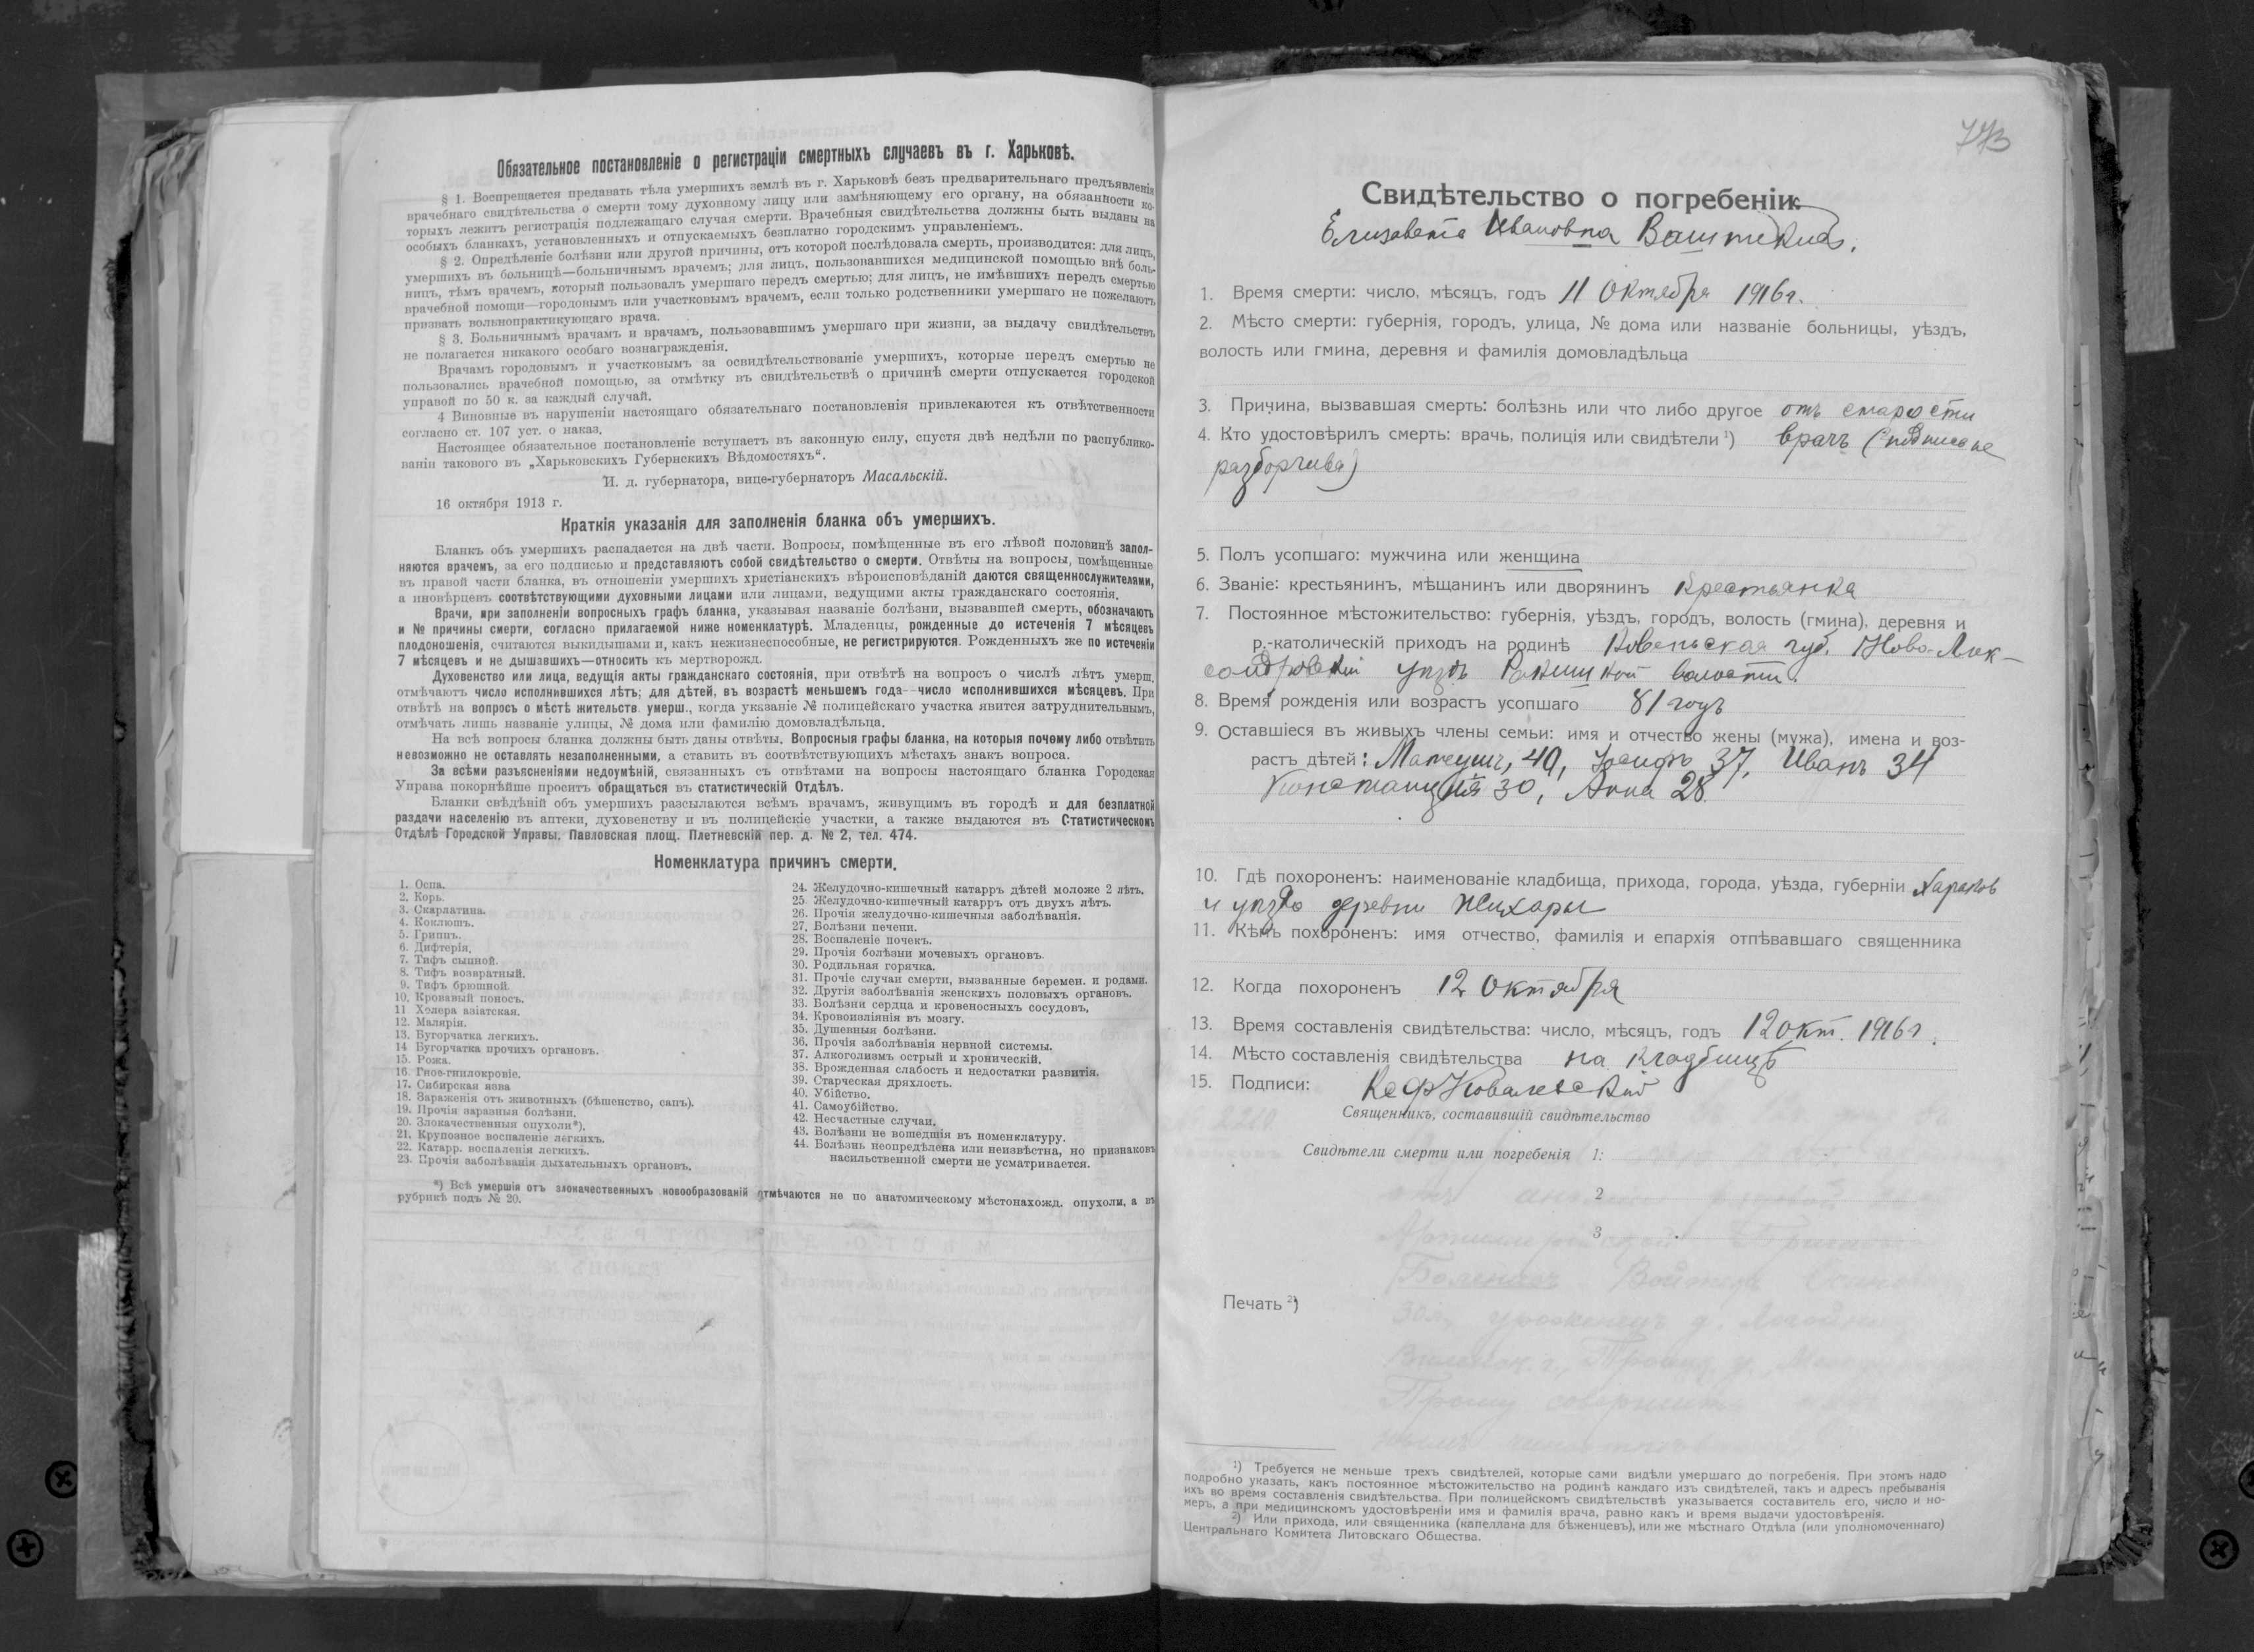 Обязательное постановленіе о регистраціи смертныхъ случаевъ въ г. Харьковѣ.
§ 1. Воспрещается предавать тѣла умершихъ землѣ въ г. Харьковѣ безъ предварительнаго предъявленія
врачебнаго свидѣтельства о смерти тому духовному лицу или замѣняющему его органу, на обязанности ко-
торыхъ лежитъ регистрація подлежащаго случая смерти. Врачебныя свидѣтельства должны быть выданы на
особыхъ бланкахъ, установленныхъ и отпускаемыхъ безплатно городскимъ управленіемъ.
§ 2. Опредѣленіе болѣзни или другой причины, отъ которой послѣдовала смерть, производится: для лицъ,
умершихъ въ больницѣ—больничнымъ врачемъ; для лицъ, пользовавшихся медицинской помощью внѣ боль-
ницъ, тѣмъ врачемъ, который пользовалъ умершаго передъ смертью; для лицъ, не имѣвшихъ передъ смертью
врачебной помощи—городовымъ или участковымъ врачемъ, если только родственники умершаго не пожелаютъ
призвать вольнопрактикующаго врача.
§ 3. Больничнымъ врачамъ и врачамъ, пользовавшимъ умершаго при жизни, за выдачу свидѣтельствъ
не полагается никакого особаго вознагражденія.
Врачамъ городовымъ и участковымъ за освидѣтельствованіе умершихъ, которые передъ смертью не
пользовались врачебной помощью, за отмѣтку въ свидѣтельствѣ о причинѣ смерти отпускается городской
управой по 50 к. за каждый случай.
4 Виновные въ нарушеніи настоящаго обязательнаго постановленія привлекаются къ отвѣтственности
согласно ст. 107 уст. о наказ.
Настоящее обязательное постановленіе вступаетъ въ законную силу, спустя двѣ недѣли по распублико-
ваніи такового въ „Харьковскихъ Губернскихъ Вѣдомостяхъ“.
И. д. губернатора, вице-губернаторъ Масальскій.
16 октября 1913 г.
Краткія указанія для заполненія бланка объ умершихъ.
Бланкъ объ умершихъ распадается на двѣ части. Вопросы, помѣщенные въ его лѣвой половинѣ запол-
няются врачемъ, за его подписью и представляютъ собой свидѣтельство о смерти. Отвѣты на вопросы, помѣщенные
въ правой части бланка, въ отношеніи умершихъ христіанскихъ вѣроисповѣданій даются священнослужителями,
а иновѣрцевъ соотвѣтствующими духовными лицами или лицами, ведущими акты гражданскаго состоянія.
Врачи, при заполненіи вопросныхъ графъ бланка, указывая названіе болѣзни, вызвавшей смерть, обозначаютъ
и № причины смерти, согласно прилагаемой ниже номенклатурѣ. Младенцы, рожденные до истеченія 7 мѣсяцевъ
плодоношенія, считаются выкидышами и, какъ нежизнеспособные, не регистрируются. Рожденныхъ же по истеченіи
7 мѣсяцевъ и не дышавшихъ—относить къ мертворожд.
Духовенство или лица, ведущія акты гражданскаго состоянія, при отвѣтѣ на вопросъ о числѣ лѣтъ умерш.
отмѣчаютъ число исполнившихся лѣтъ; для дѣтей, въ возрастѣ меньшемъ года—число исполнившихся мѣсяцевъ. При
отвѣтѣ на вопросъ о мѣстѣ жительств. умерш., когда указаніе № полицейскаго участка явится затруднительнымъ,
отмѣчать лишь названіе улицы, № дома или фамилію домовладѣльца.
На всѣ вопросы бланка должны быть даны отвѣты. Вопросныя графы бланка, на которыя почему либо отвѣтить
невозможно не оставлять незаполненными, а ставить въ соотвѣтствующихъ мѣстахъ знакъ вопроса.
За всѣми разъясненіями недоумѣній, связанныхъ съ отвѣтами на вопросы настоящаго бланка Городская
Управа покорнѣйше проситъ обращаться въ статистическій Отдѣлъ.
Бланки свѣдѣній объ умершихъ разсылаются всѣмъ врачамъ, живущимъ въ городѣ и для безплатной
раздачи населенію въ аптеки, духовенству и въ полицейскіе участки, а также выдаются въ Статистическомъ
Отдѣлѣ Городской Управы. Павловская площ. Плетневскій пер. д. № 2, тел. 474.
Номенклатура причинъ смерти.
1. Оспа.
2. Корь.
3. Скарлатина.
4. Коклюшъ.
5. Гриппъ.
6. Дифтерія.
7. Тифъ сыпной.
8. Тифъ возвратный.
9. Тифъ брюшной.
10. Кровавый поносъ.
11 Холера азіатская.
12. Малярія.
13. Бугорчатка легкихъ.
14 Бугорчатка прочихъ органовъ.
15. Рожа.
16. Гноэ-гнилокровіе.
17. Сибирская язва
18. Зараженія отъ животныхъ (бѣшенство, сапъ).
19. Прочія заразныя болѣзни.
20. Злокачественныя опухоли*).
21. Крупозное воспаленіе легкихъ.
22. Катарр. воспаленія легкихъ.
23. Прочія заболѣванія дыхательныхъ органовъ.
24. Желудочно-кишечный катарръ дѣтей моложе 2 лѣтъ.
25. Желудочно-кишечный катарръ отъ двухъ лѣтъ.
26. Прочія желудочно-кишечныя заболѣванія.
27. Болѣзни печени.
28. Воспаленіе почекъ.
29. Прочія болѣзни мочевыхъ органовъ.
30. Родильная горячка.
31. Прочіе случаи смерти, вызванные беремен. и родами.
32. Другія заболѣванія женскихъ половыхъ органовъ.
33. Болѣзни сердца и кровеносныхъ сосудовъ.
34. Кровоизліянія въ мозгу.
35. Душевныя болѣзни.
36. Прочія заболѣванія нервной системы.
37. Алкоголизмъ острый и хроническій.
38. Врожденная слабость и недостатки развитія.
39. Старческая дряхлость.
40. Убійство.
41. Самоубійство.
42. Несчастные случаи.
43. Болѣзни не вошедшія въ номенклатуру.
44. Болѣзнь неопредѣлена или неизвѣстна, но признаковъ
насильственной смерти не усматривается.
*) Всѣ умершія отъ злокачественныхъ новообразованій отмѣчаются не по анатомическому мѣстонахожд. опухоли, а въ
рубрикѣ подъ № 20.
773
Свидѣтельство о погребеніи:
Елизавета Ивановна
1. Время смерти: число, мѣсяцъ, годъ 11 Октября 1916 г.
2. Мѣсто смерти: губернія, городъ, улица, № дома или названіе больницы, уѣздъ,
волость или гмина, деревня и фамилія домовладѣльца
3. Причина, вызвавшая смерть: болѣзнь или что либо другое отъ старости
4. Кто удостовѣрилъ смерть: врачъ, полиція или свидѣтели ¹) врачъ (подпись не
разборчива)
5. Полъ усопшаго: мужчина или женщина
6. Званіе: крестьянинъ, мѣщанинъ или дворянинъ крестьянка
7. Постоянное мѣстожительство: губернія, уѣздъ, городъ, волость (гмина), деревня и
р.-католическій приходъ на родинѣ Ковенская губ. Ново-Алек-
сандровскій уѣздъ волости.
8. Время рожденія или возрастъ усопшаго 81 годъ
9. Оставшіеся въ живыхъ члены семьи: имя и отчество жены (мужа), имена и воз-
растъ дѣтей: Матеушъ, 40, Іосифъ 37, Иванъ 34
Констанція 30, Анна 28.
10. Гдѣ похороненъ: наименованіе кладбища, прихода, города, уѣзда, губерніи Харьков
уѣзда деревни Жихары
11. Кѣмъ похороненъ: имя отчество, фамилія и епархія отпѣвавшаго священника
12. Когда похороненъ 12 Октября
13. Время составленія свидѣтельства: число, мѣсяцъ, годъ 12 окт. 1916 г.
14. Мѣсто составленія свидѣтельства на кладбищѣ
15. Подписи: Ковалевскій
Священникъ, составившій свидѣтельство
Свидѣтели смерти или погребенія 1:
2
3
Печать ²)
¹) Требуется не меньше трехъ свидѣтелей, которые сами видѣли умершаго до погребенія. При этомъ надо
подробно указать, какъ постоянное мѣстожительство на родинѣ каждаго изъ свидѣтелей, такъ и адресъ пребыванія
ихъ во время составленія свидѣтельства. При полицейскомъ свидѣтельствѣ указывается составитель его, число и но-
меръ, а при медицинскомъ удостовѣреніи имя и фамилія врача, равно какъ и время выдачи удостовѣренія.
²) Или прихода, или священника (капеллана для бѣженцевъ), или же мѣстнаго Отдѣла (или уполномоченнаго)
Центральнаго Комитета Литовскаго Общества.